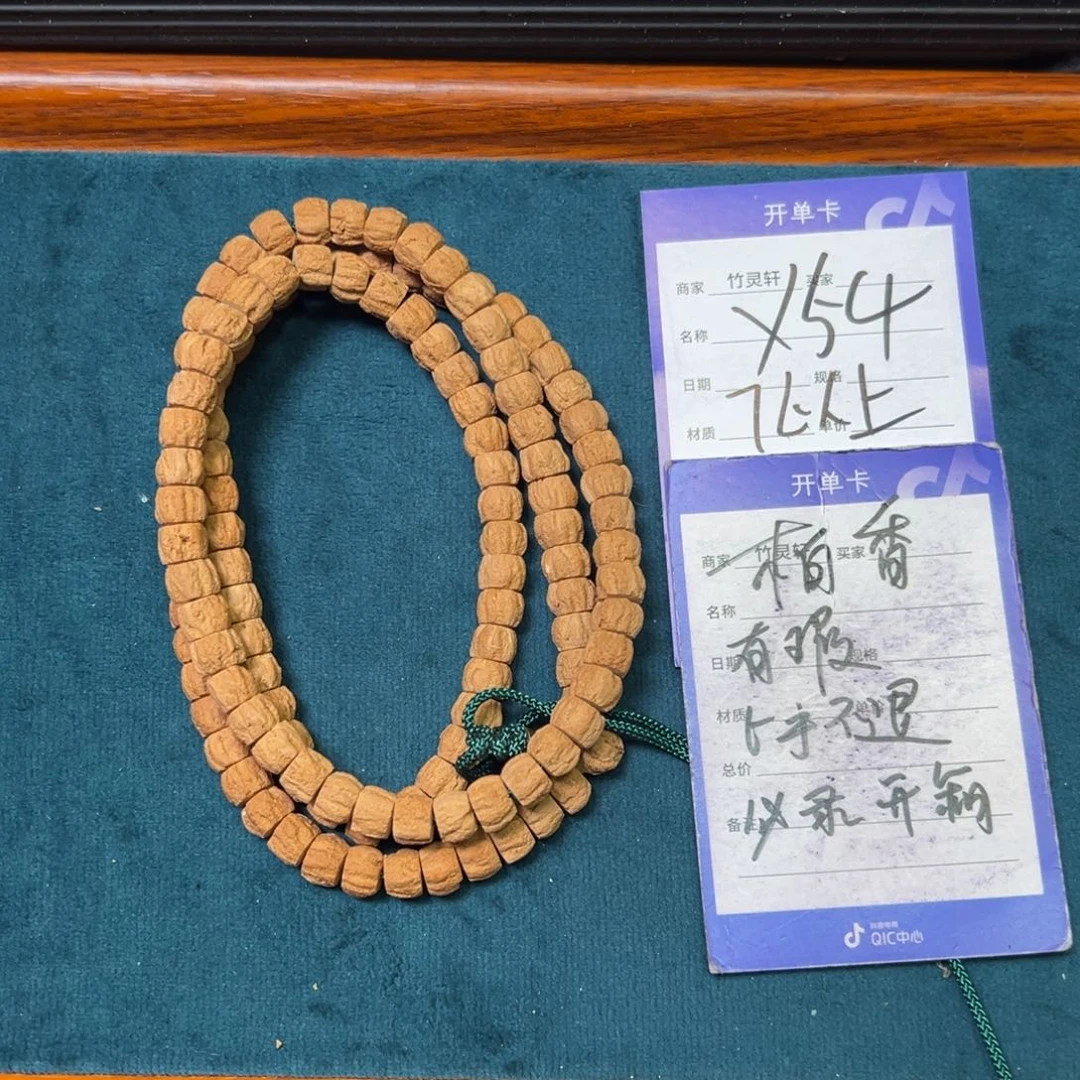 开单卡
商家 竹灵轩 买家
Y54
名称
日期 规格
7亿以上
材质 单价
开单卡
商家 竹灵轩 买家
柏香
名称
有瑕
日期 规格
材质
卜手不退
总价
必录开箱
备注
抖音电商
QIC中心